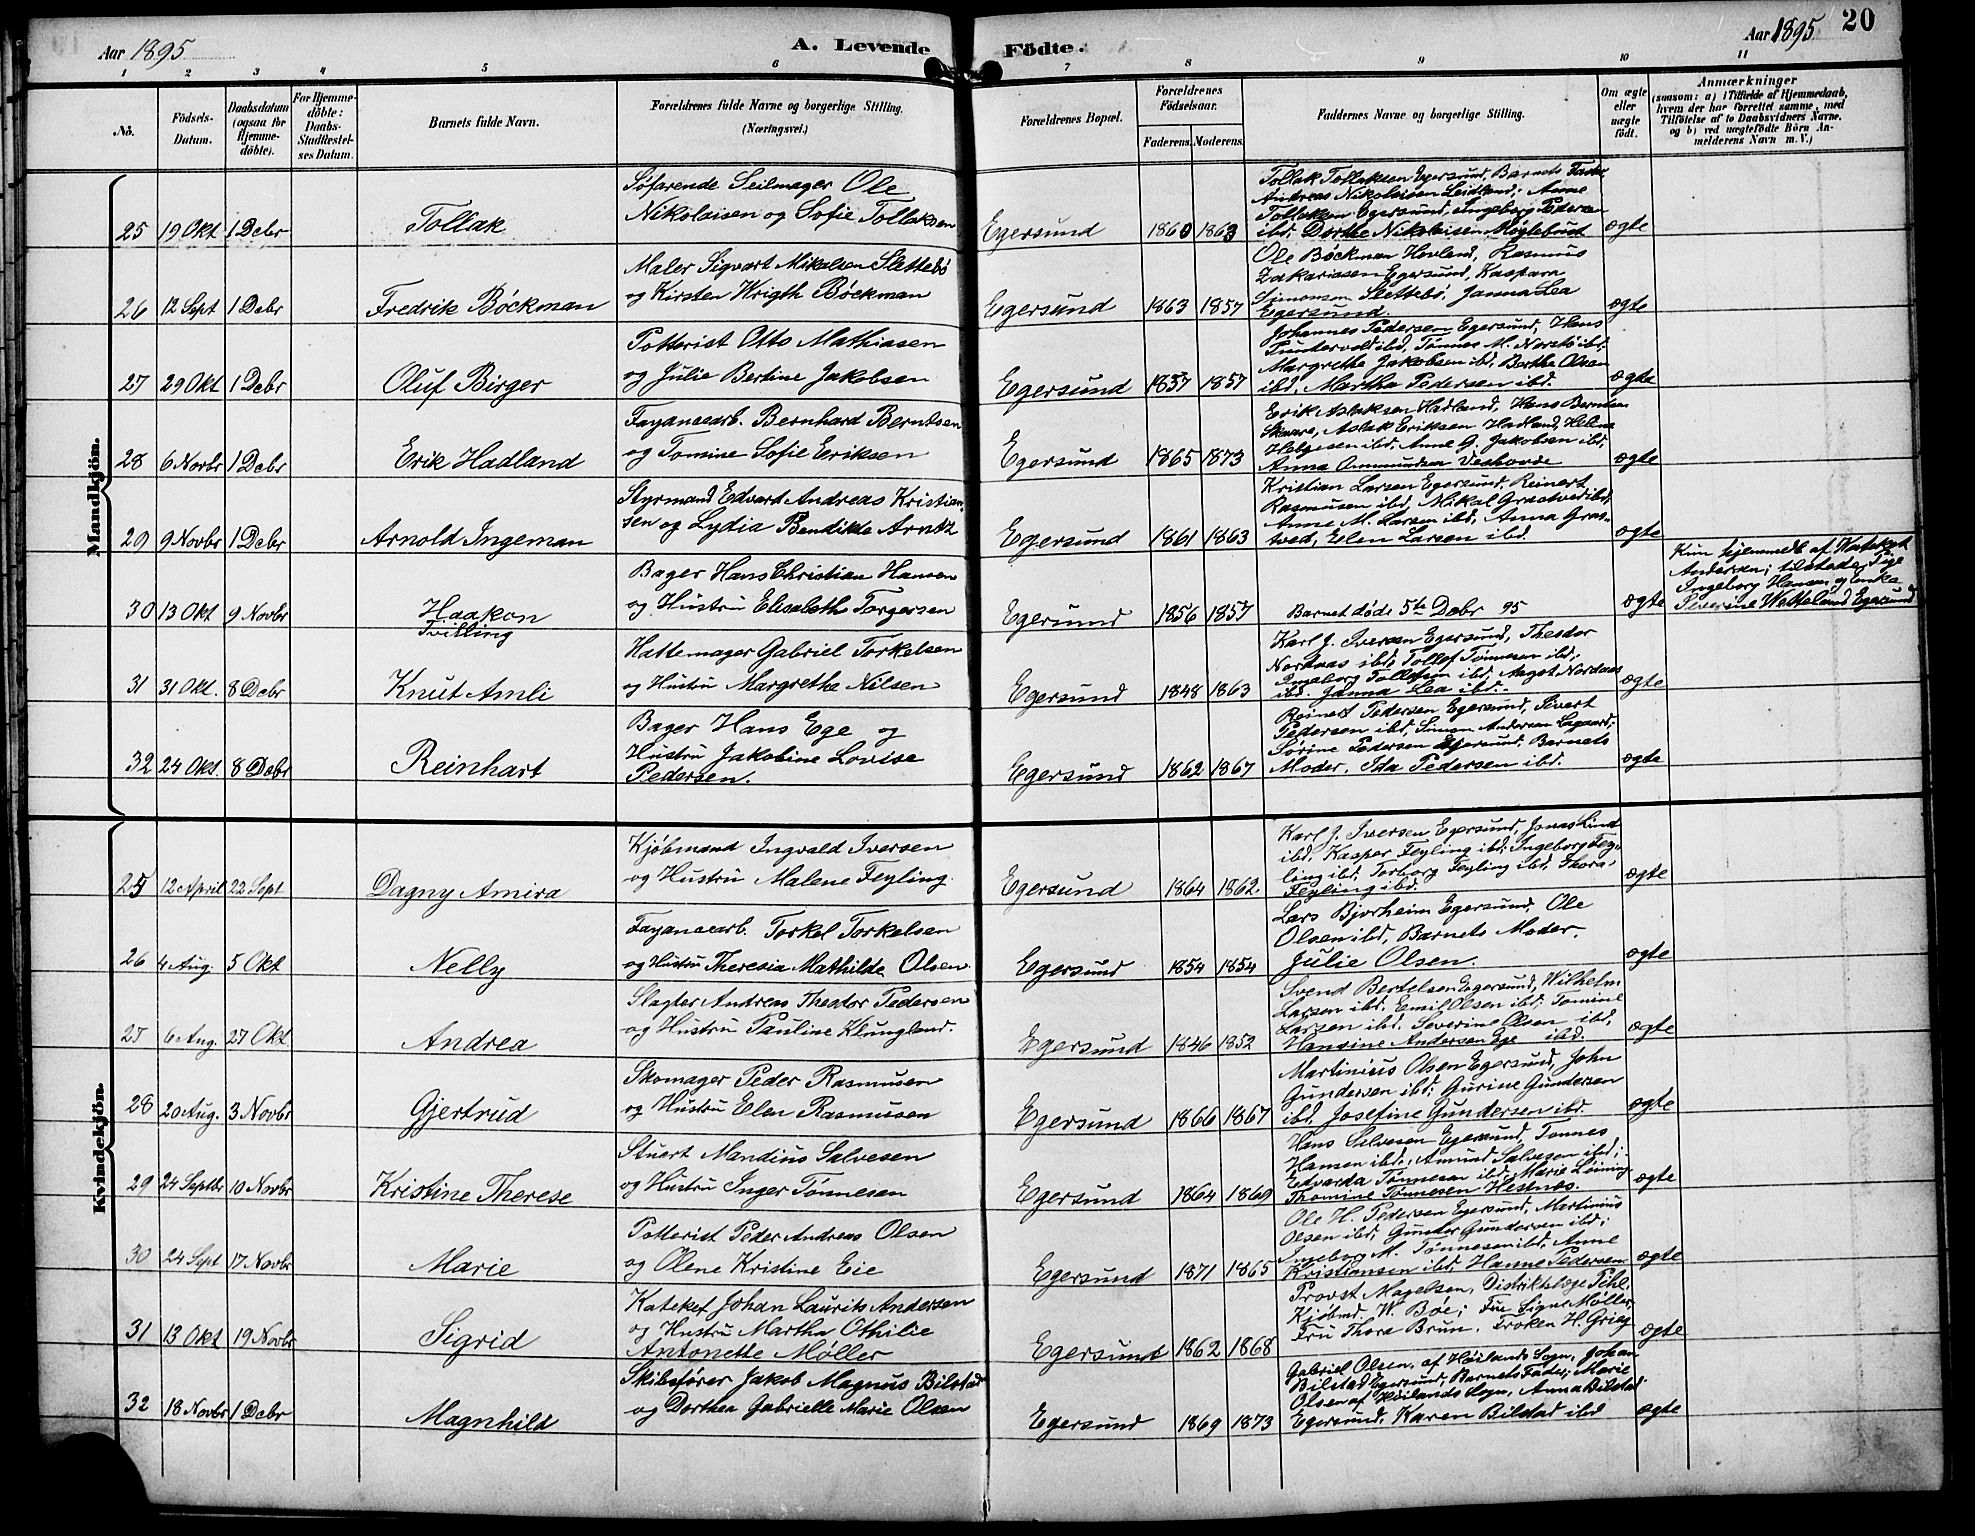 Aar 1895
A. Levende Födte.
Aar 1895
20
1 2 3 4 5 6 7 8 9 10 11
No.
Födsels-Datum.
Daabsdatum (ogsaa for Hjemme-döbte).
For Hjemme-döbte: Daabs-Stadfestel-ses Datum.
Barnets fulde Navn.
Forældrenes fulde Navne og borgerlige Stilling. (Næringsvei.)
Forældrenes Bopæl.
Forældrenes Födselsaar.
Faderens. Moderens.
Faddernes Navne og borgerlige Stilling.
Om ægte eller uægte födt.
Anmærkninger
(saasom: a) i Tilfælde af Hjemmedaab, hvem der har forrettet samme, med Tilföielse af to Daabsvidners Navne. og b) ved uægtefödte Börn An-melderens Navn m. V.)
Mandkjön.
25 19 Okt 1 Debr Tollak
Søfarende Seilmager Ole
Nikolaisen og Sofie Tollaksen
Egersund 1860 1863
Tollak Tollaksen Egersund, Barnets Fader,
Andreas Nikolaisen Leidland; Anne
Tollaksen Egersund, Ingeborg Pedersen
ibd, Dorthe Nikolaisen Møglebust
ægte
26 12 Sept 1 Debr Fredrik Bøckman
Maler Sigvart Mikalsen Slettebø
og Kirsten Wrigth Bøckman
Egersund 1863 1857
Ole Bøckman Hovland, Rasmus
Zakariasen Egersund, Kaspara
Simonsen Slettebø, Janna Lea
Egersund.
ægte
27 29 Okt 1 Debr Oluf Birger
Potterist Otto Mathiasen
og Julie Bertine Jakobsen
Egersund 1857 1857
Johannes Pedersen Egersund, Hans
ibd, Tønnes M. ibd.
Margrethe Jakobsen ibd, Berthe Olsen
ibd, Martha Pedersen ibd.
ægte
28 6 Novbr 1 Debr Erik Hadland
Fayancearb. Bernhard Berntsen
og Tomine Sofie Eriksen
Egersund 1865 1873
Erik Aslaksen Hadland, Hans Berntsen
Skaare, Aslak Eriksen Hadland, Helene
Helgesen ibd, Anne G. Jakobsen ibd,
Anna Ommundsen
ægte
29 9 Novbr 1 Debr Arnold Ingeman
Styrmand Edvard Andreas Kristian-
sen og Lydia Bendikte Arntz
Egersund 1861 1863
Kristian Larsen Egersund, Reinert
Rasmusen ibd, Mikal Graatved ibd,
Anne M. Larsen ibd, Anna Graa-
tved, Elen Larsen ibd.
ægte
30 13 Okt 9 Novbr Haakon
Tvilling
Bager Hans Christian Hansen
og Hustru Elisabeth Torgersen
Egersund 1856 1857
Barnet døde 5te Debr 95
ægte
Kun hjemmedb af Kateket
Andersen; tilstede, Pige
Ingeborg Hansen og enke
Severine Wetteland Egersund
31 31 Okt. 8 Debr Knut Amli
Hattemager Gabriel Torkelsen
og Hustru Margrethe Nilsen
Egersund 1848 1863
Karl J. Iversen Egersund, Theodor
Nordaas ibd, Tollef Tønnesen ibd;
Ingeborg Tollefsen ibd, Aagot Nordaas
ibd. Janna Lea ibd.
ægte
32 24 Okt. 8 Debr Reinhart
Bager Hans Ege og
Hustru Jakobine Lovise
Pedersen.
Egersund 1862 1867
Reinert Pedersen Egersund, Sivert
Pedersen ibd, Simon Andersen Lagaard;
Sørine Pedersen Egersund, Barnets
Moder, Ida Pedersen ibd.
ægte
Kvindekjön.
25 12 April 22 Sept Dagny Amira
Kjøbmand Ingvald Iversen
og Hustru Malene Feyling.
Egersund 1864 1862.
Karl J. Iversen Egersund, Jonas Lind
ibd, Kasper Feyling ibd; Ingeborg Fey-
ling ibd, Torborg Feyling ibd, Thora
Feyling ibd.
ægte
26 4 Aug. 5 Okt Nelly
Fayancearb. Torkel Torkelsen
og Hustru Theresia Mathilde Olsen
Egersund 1854 1854
Lars Bjorheim Egersund, Ole
Olsen ibd, Barnets Moder,
Julie Olsen.
ægte
27 6 Aug. 27 Okt Andrea
Slagter Andreas Theodor Pedersen
og Hustru Pauline Klungland.
Egersund 1846 1852
Svend Bertelsen Egersund, Wilhelm
Larsen ibd. Emil Olsen ibd; Tomine
Larsen ibd. Severine Olsen ibd,
Hansine Andersen Ege ibd.
ægte
28 20 Aug. 3 Novbr Gjertrud
Skomager Peder Rasmusen
og Hustru Elen Rasmusen
Egersund 1866 1867
Martinius Olsen Egersund, John
Gundersen ibd; Gurine Gundersen
ibd, Josefine Gundersen ibd.
ægte
29 24 Septbr 10 Novbr Kristine Therese
Stuert Mandius Salvesen
og Hustru Inger Tønnesen
Egersund 1864 1869
Hans Salvesen Egersund, Tønnes
Hansen ibd, Amund Salvesen ibd;
Edvarda Tønnesen ibd, Marie Løining
Thomine Tønnesen Hestnes.
ægte
30 24 Sept 17 Novbr Marie
Potterist Peder Andreas Olsen
og Olene Kristine Eie
Egersund 1871 1865
Ole H. Pedersen Egersund, Martinius
Olsen ibd, Gunder Gundersen ibd;
Ingeborg M. Tønnesen ibd, Anne
Kristiansen ibd, Hanne Pedersen
ægte
31 13 Okt 19 Novbr Sigrid
Kateket Johan Laurits Andersen
og Hustru Martha Othilie
Antonette Møller
Egersund 1862 1868
Provst Magelsen, Distriktslæge Pihl,
Kjøbmd. W. Bøe; Fru Signe Møller,
Fru Thora Brun, Frøken H. Grieg
ægte
32 18 Novbr 1 Debr Magnhild
Skibsfører Jakob Magnus Bilstad
og Dorthea Gabrielle Marie Olsen
Egersund 1869 1873
Gabriel Olsen, af Høilands Sogn, Johan
Bilstad Egersund, Barnets Fader; Marie
Olsen af Høilands Sogn, Anna Bilstad
Egersund, Karen Bilstad ibd
ægte